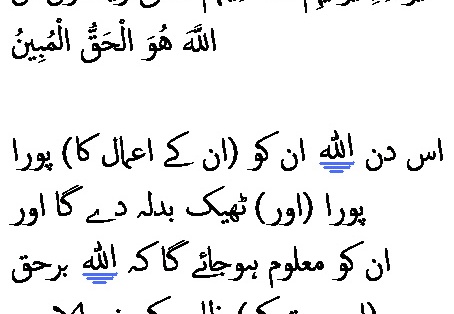 اللَّهَ هُوَ الْحَقُّ الْمُبِينُ
اس دن الله ان کو (ان کے اعمال کا) پورا
پورا (اور) ٹھیک بدلہ دے گا اور
ان کو معلوم ہوجائے گا کہ الله برحق